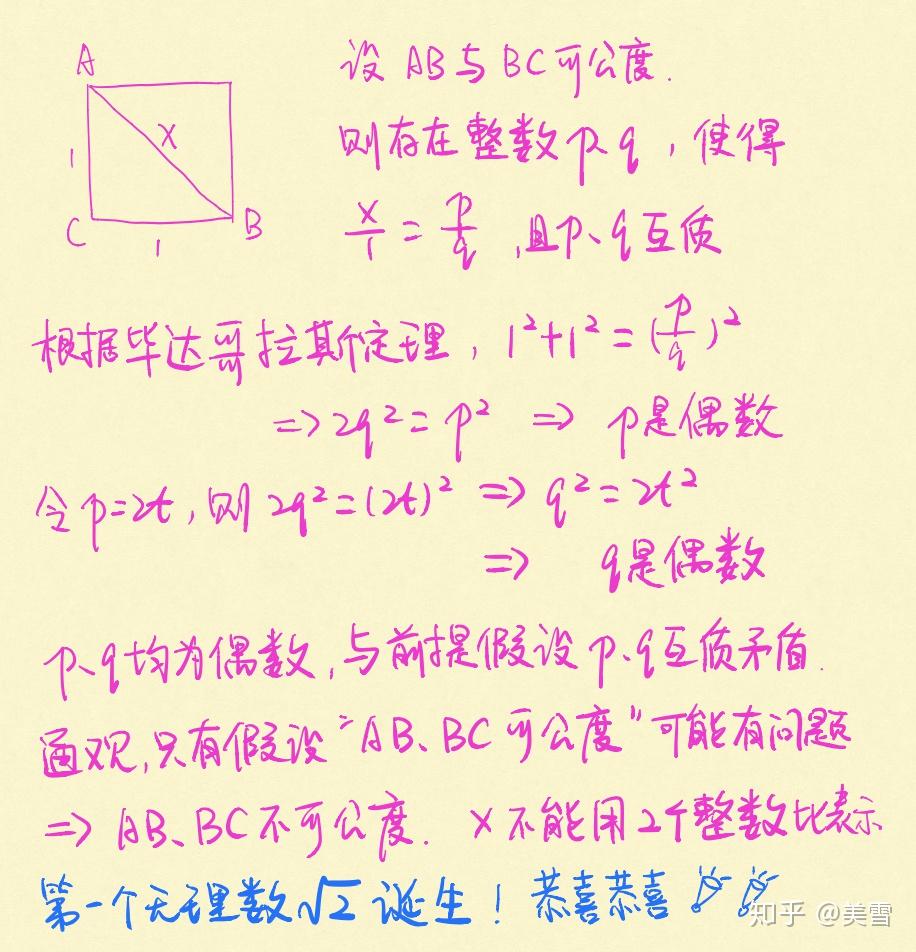 A
设 AB与 BC可公度.
X
则存在整数p、q，使得
1
C
B
1
x/1 = p/q ,且p、q互质
根据毕达哥拉斯定理，1²+1²=(p/q)²
=> 2q²=p² => p是偶数
令p=2t,则 2q²=(2t)² => q²=2t²
=> q是偶数
p、q均为偶数,与前提假设p、q互质矛盾.
通观,只有假设“AB、BC可公度”可能有问题
=> AB、BC不可公度. x不能用2个整数比表示
第一个无理数√2 诞生！恭喜恭喜
知乎 @美雪